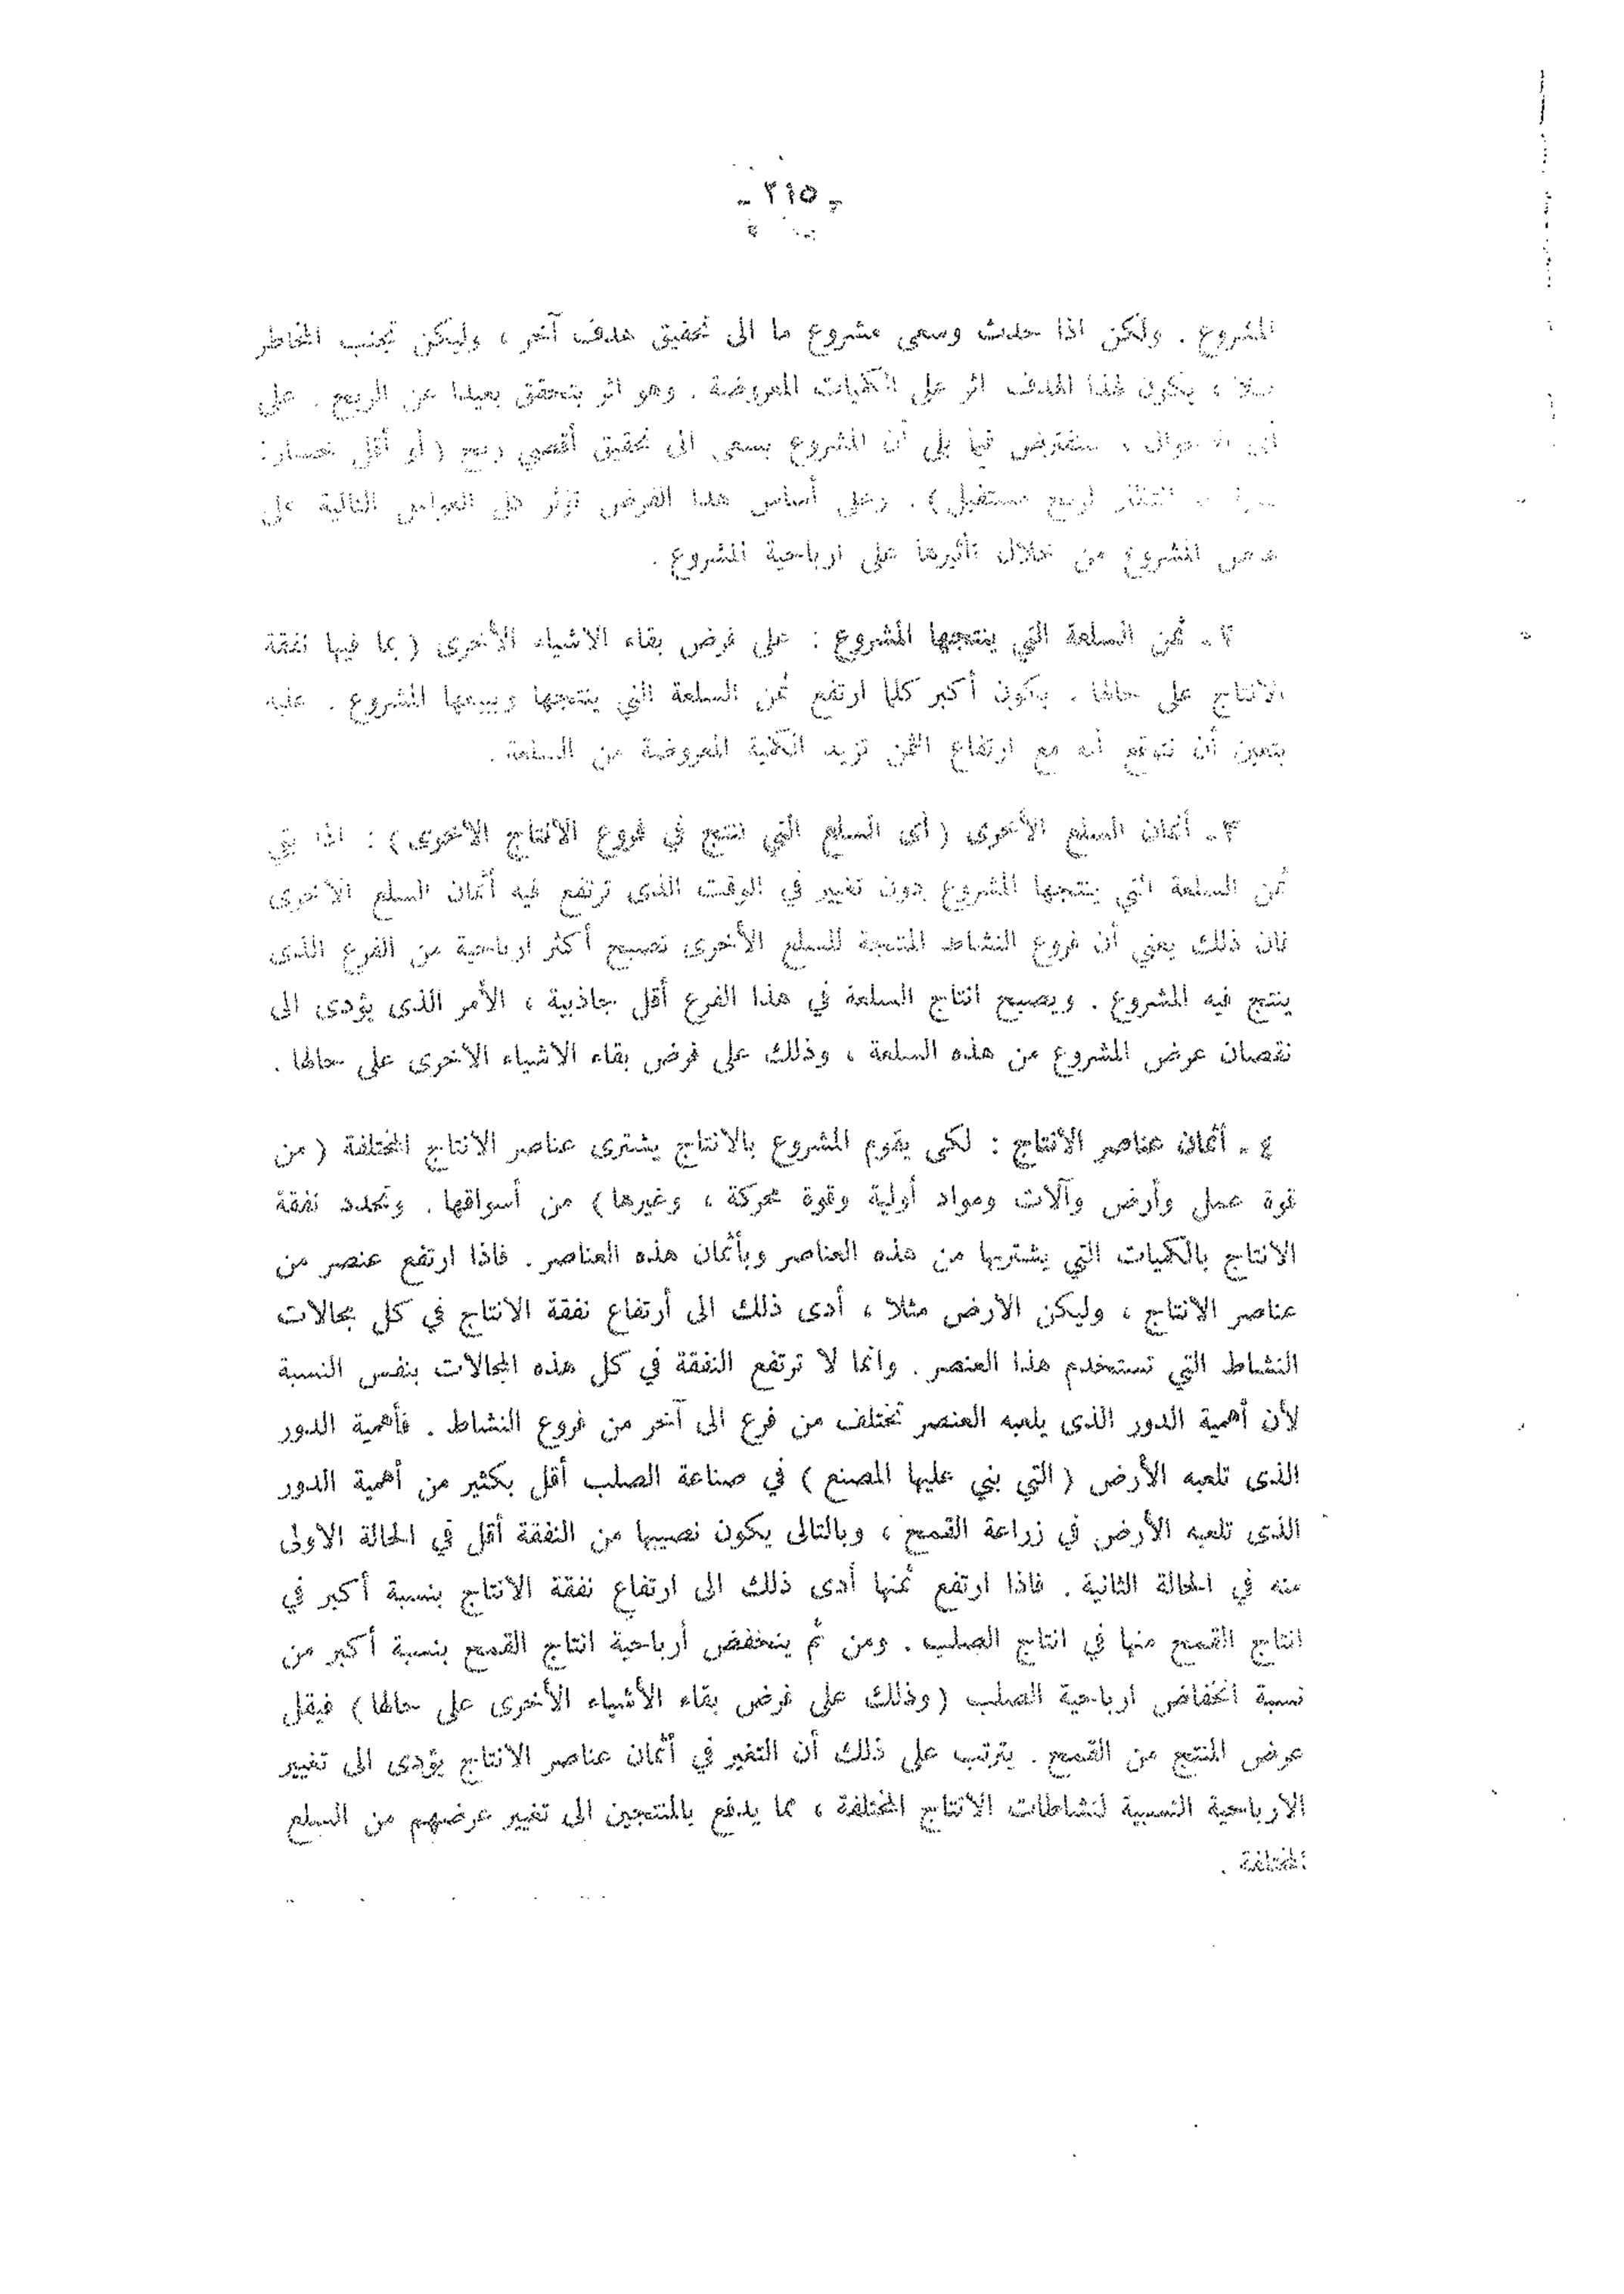 - ٢١٥ -
المشروع . ولكن اذا حدث وسعى مشروع ما الى تحقيق هدف آخر ، وليكن تجنب المخاطر
مثلا ، يكون لهذا الهدف اثر على الكميات المعروضة . وهو اثر يتحقق بعيدا عن الربح . على
أي الاحوال ، سنفترض فيما يلي أن المشروع يسعى الى تحقيق أقصى ربح ( أو أقل خسارة
انتظار لربح مستقبل ) . وعلى أساس هذا الفرض تؤثر كل العوامل التالية على
عرض المشروع من خلال تأثيرها على ارباحية المشروع .
٢ - ثمن السلعة التي ينتجها المشروع : على فرض بقاء الاشياء الأخرى ( بما فيها نفقة
الانتاج على حالها . يكون أكبر كلما ارتفع ثمن السلعة التي ينتجها ويبيعها المشروع . عليه
يتعين أن نتوقع أنه مع ارتفاع الثمن تزيد الكمية المعروضة من السلعة .
٣ - أثمان السلع الأخرى ( أى السلع التي تنتج في فروع الانتاج الاخرى ) : اذا بقي
ثمن السلعة التي ينتجها المشروع بدون تغيير في الوقت الذى ترتفع فيه أثمان السلع الاخرى
فان ذلك يعني أن فروع النشاط المنتجة للسلع الأخرى تصبح أكثر ارباحية من الفرع الذى
ينتج فيه المشروع . ويصبح انتاج السلعة في هذا الفرع أقل جاذبية ، الأمر الذى يؤدى الى
نقصان عرض المشروع من هذه السلعة ، وذلك على فرض بقاء الاشياء الاخرى على حالها .
٤ - أثمان عناصر الانتاج : لكى يقوم المشروع بالانتاج يشترى عناصر الانتاج المختلفة ( من
قوة عمل وأرض وآلات ومواد أولية وقوة محركة ، وغيرها ) من أسواقها . وتتحدد نفقة
الانتاج بالكميات التي يشتريها من هذه العناصر وبأثمان هذه العناصر . فاذا ارتفع عنصر من
عناصر الانتاج ، وليكن الارض مثلا ، أدى ذلك الى أرتفاع نفقة الانتاج في كل مجالات
النشاط التي تستخدم هذا العنصر . وانما لا ترتفع النفقة في كل هذه المجالات بنفس النسبة
لأن أهمية الدور الذى يلعبه العنصر تختلف من فرع الى آخر من فروع النشاط . فأهمية الدور
الذى تلعبه الأرض ( التي بني عليها المصنع ) في صناعة الصلب أقل بكثير من أهمية الدور
الذى تلعبه الأرض في زراعة القمح ، وبالتالى يكون نصيبها من النفقة أقل في الحالة الاولى
منه في الحالة الثانية . فاذا ارتفع ثمنها أدى ذلك الى ارتفاع نفقة الانتاج بنسبة أكبر في
انتاج القمح منها في انتاج الصلب . ومن ثم ينخفض أرباحية انتاج القمح بنسبة أكبر من
نسبة انخفاض ارباحية الصلب ( وذلك على فرض بقاء الأشياء الأخرى على حالها ) فيقل
عرض المنتج من القمح . يترتب على ذلك أن التغير في أثمان عناصر الانتاج يؤدى الى تغيير
الارباحية النسبية لنشاطات الانتاج المختلفة ، مما يدفع بالمنتجين الى تغيير عرضهم من السلع
المختلفة .